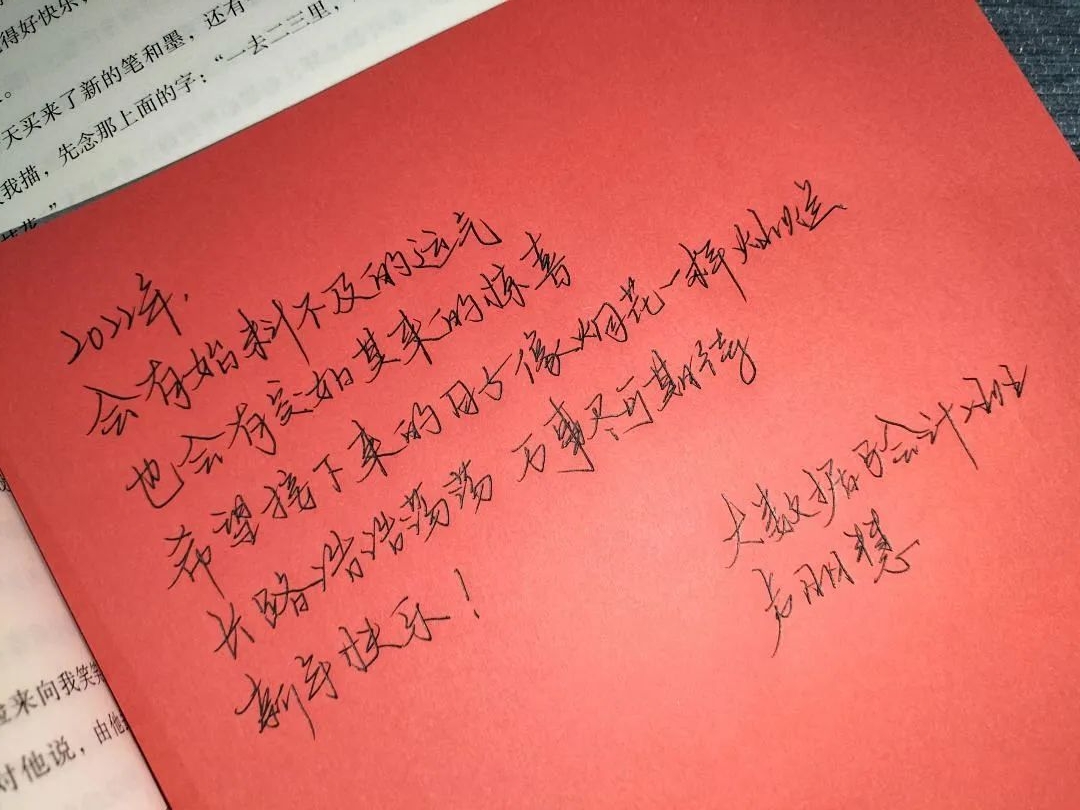 得好快乐，
天买来了新的笔和墨，还有
我描，先念那上面的字：“一去二三里，
2022年，
会有始料不及的运气
也会有突如其来的惊喜
希望接下来的日子像烟花一样灿烂
长路浩浩荡荡 万事尽可期待
新年快乐！
大数据与会计
慧
来向我笑笑
对他说，由他